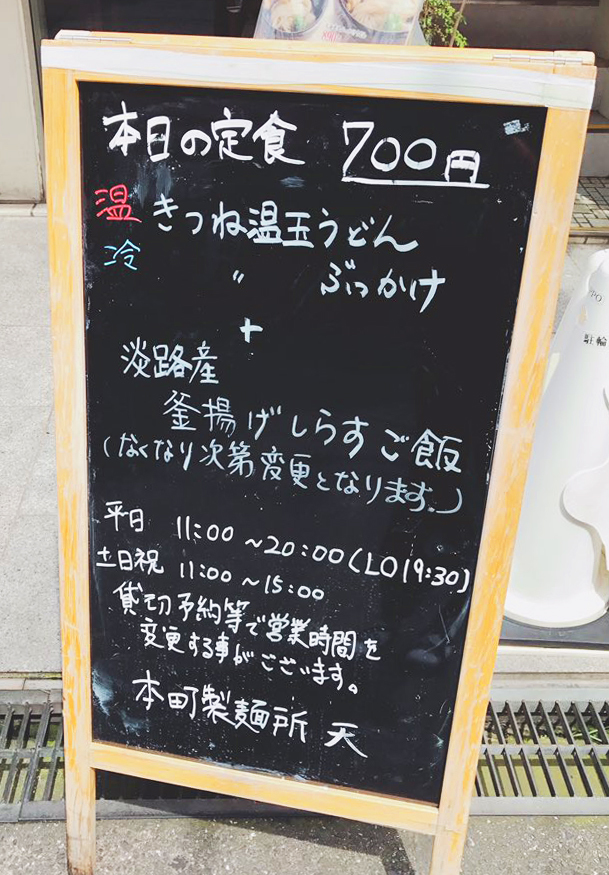 本日の定食 700円
温 きつね温玉うどん
冷 〃 ぶっかけ
+
淡路産
釜揚げしらすご飯
(なくなり次第変更となります。)
平日 11:00 ~20:00(LO 19:30)
土日祝 11:00 ~15:00
貸切予約等で営業時間を
変更する事がございます。
本町製麺所 天
駐輪